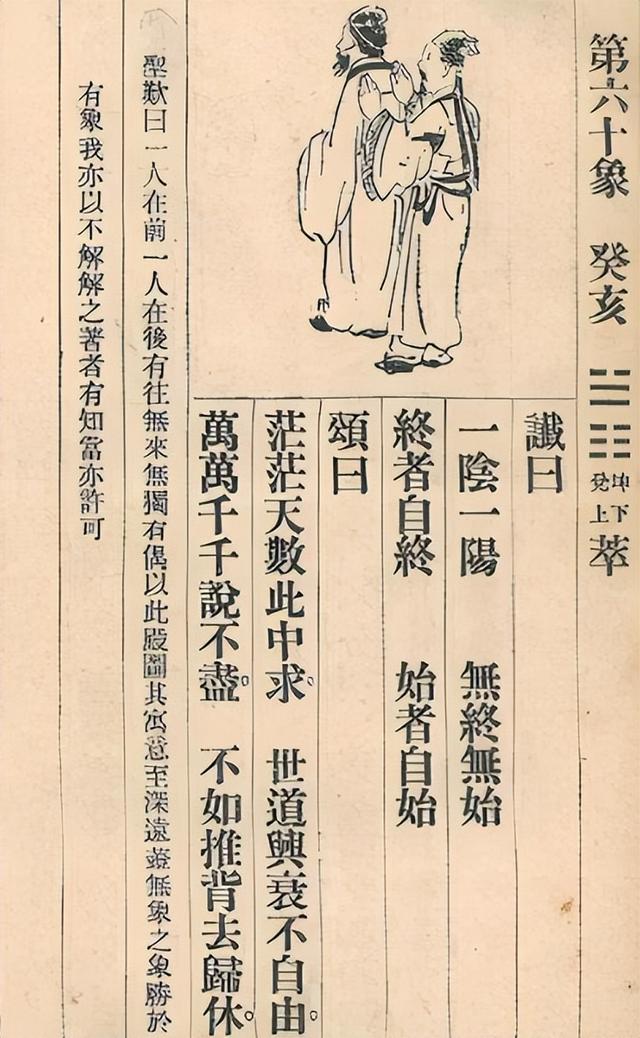 第六十象　癸亥
坤下
兌上
萃
讖曰
一陰一陽　無終無始
終者自終　始者自始
頌曰
茫茫天數此中求。　世道興衰不自由。
萬萬千千說不盡。　不如推背去歸休。
聖歎曰一人在前一人在後有往無來無獨有偶以此殿圖其寓意至深遠焉無象之象勝於
有象我亦以不解解之著者有知當亦許可